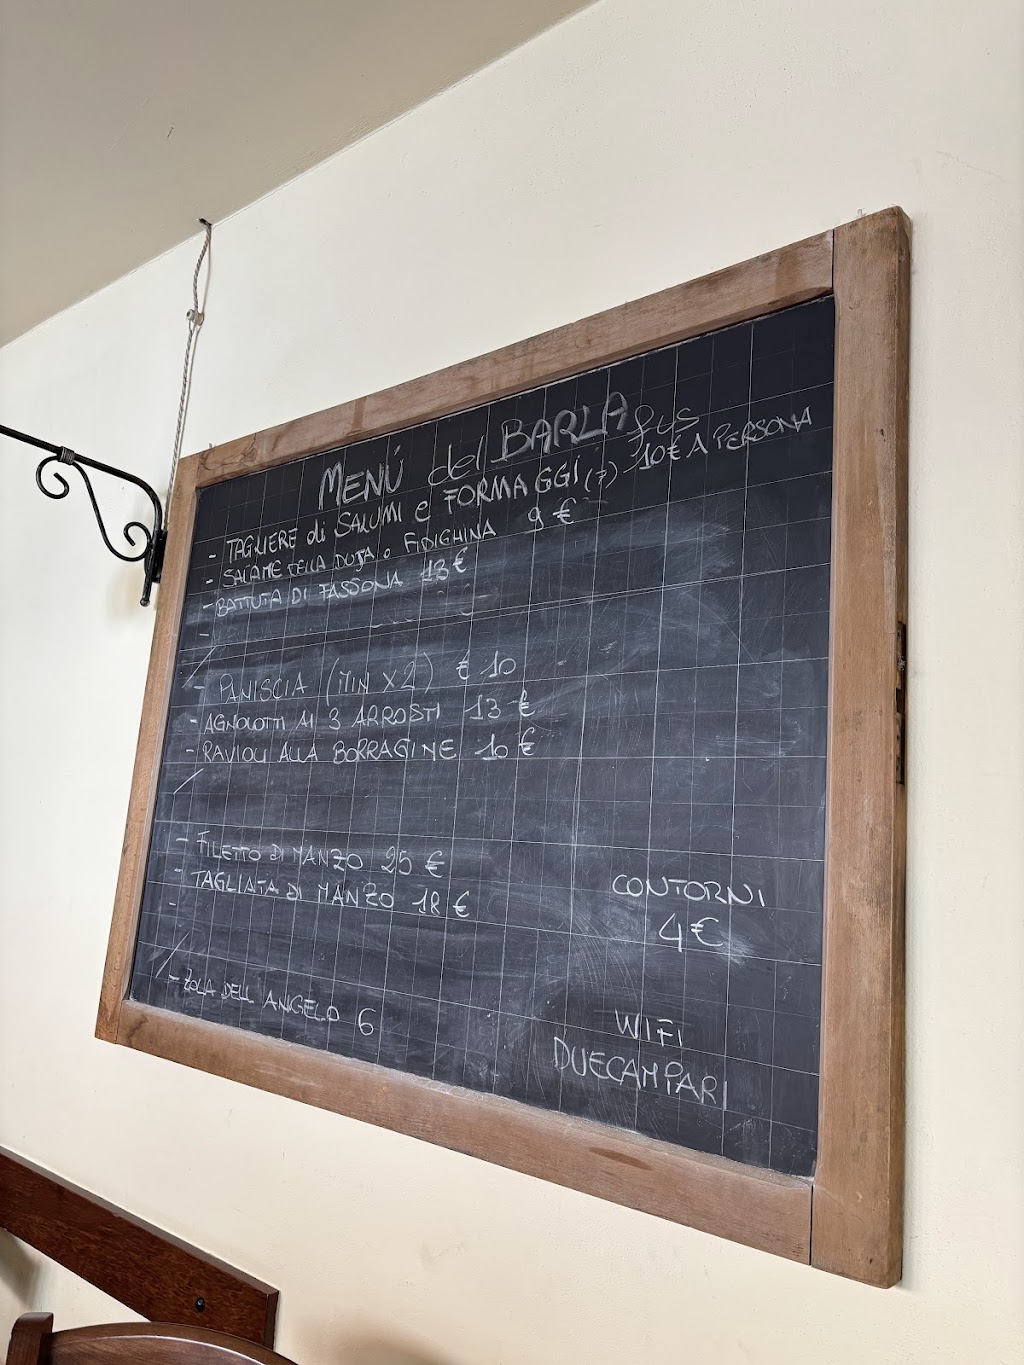 MENÚ del BARLAfus
- TAGLIERE di SALUMI e FORMAGGI (7) 10€ A PERSONA
- SALAME DELLA DUJA o FIDIGHINA 9 €
- BATTUTA DI FASSONA 13 €
-
- PANISCIA (MIN X2) € 10
- AGNOLOTTI AI 3 ARROSTI 13 €
- RAVIOLI ALLA BORRAGINE 10 €
- FILETTO DI MANZO 25 €
- TAGLIATA DI MANZO 18 €
-
- ZOLA DELL ANGELO 6
CONTORNI
4€
WIFI
DUECAMPARI